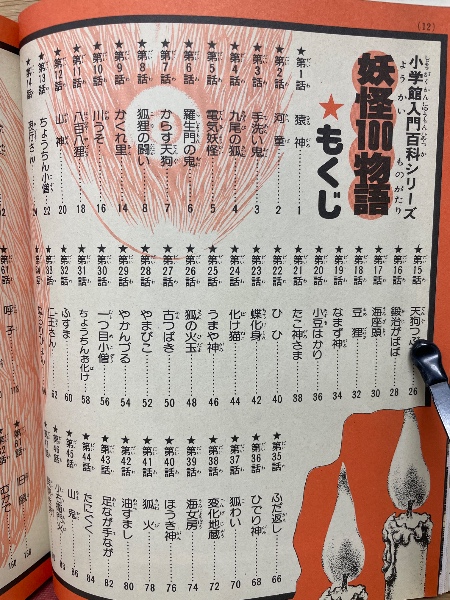 (12)
小学館入門百科シリーズ
妖怪100物語
★もくじ
★第1話 猿神……1
★第2話 河童……2
★第3話 手洗い鬼……3
★第4話 九尾の狐……4
★第5話 電気妖怪……5
★第6話 羅生門の鬼……6
★第7話 からす天狗……7
★第8話 狐狸の闘い……8
★第9話 かくれ里……14
★第10話 川うそ……16
★第11話 八百八狸……18
★第12話 山神……20
★第13話 ちょうちん小僧……22
★第15話 天狗つぶ……26
★第16話 鍛冶がばば……28
★第17話 海座頭……30
★第18話 豆狸……32
★第19話 なまず神……34
★第20話 小豆はかり……36
★第21話 たこ神さま……38
★第22話 ひひ……40
★第23話 蝶化身……42
★第24話 化け猫……44
★第25話 うまや神……46
★第26話 狐の火玉……48
★第27話 古つばき……50
★第28話 やまびこ……52
★第29話 やかんづる……54
★第30話 一つ目小僧……56
★第31話 ちょうちんお化け……58
★第32話 ふすま……60
★第35話 ふだ返し……66
★第36話 ひでり神……68
★第37話 狐わい……70
★第38話 変化地蔵……72
★第39話 海女房……74
★第40話 ほうき神……76
★第41話 狐火……78
★第42話 油すまし……80
★第43話 足なが手なが……82
★第44話 たにくく……84
★第45話 山鬼……86
呼子